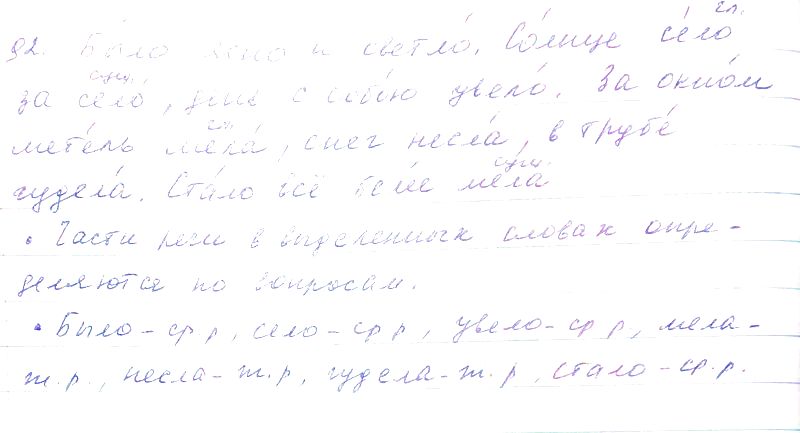 92. Было ясно и светло́. Со́лнце се́ло гл.
за село́ сущ., день с собо́ю увело́. За окно́м
мете́ль мела́ гл., снег несла́, в трубе́
гудела́. Ста́ло всё беле ме́ла сущ.
• Части речи в выделенных словах опре-
деляются по вопросам.
• Было - ср р, село - ср р, увело - ср р, мела -
ж.р., несла - ж.р, гудела - ж.р, стало - ср.р.